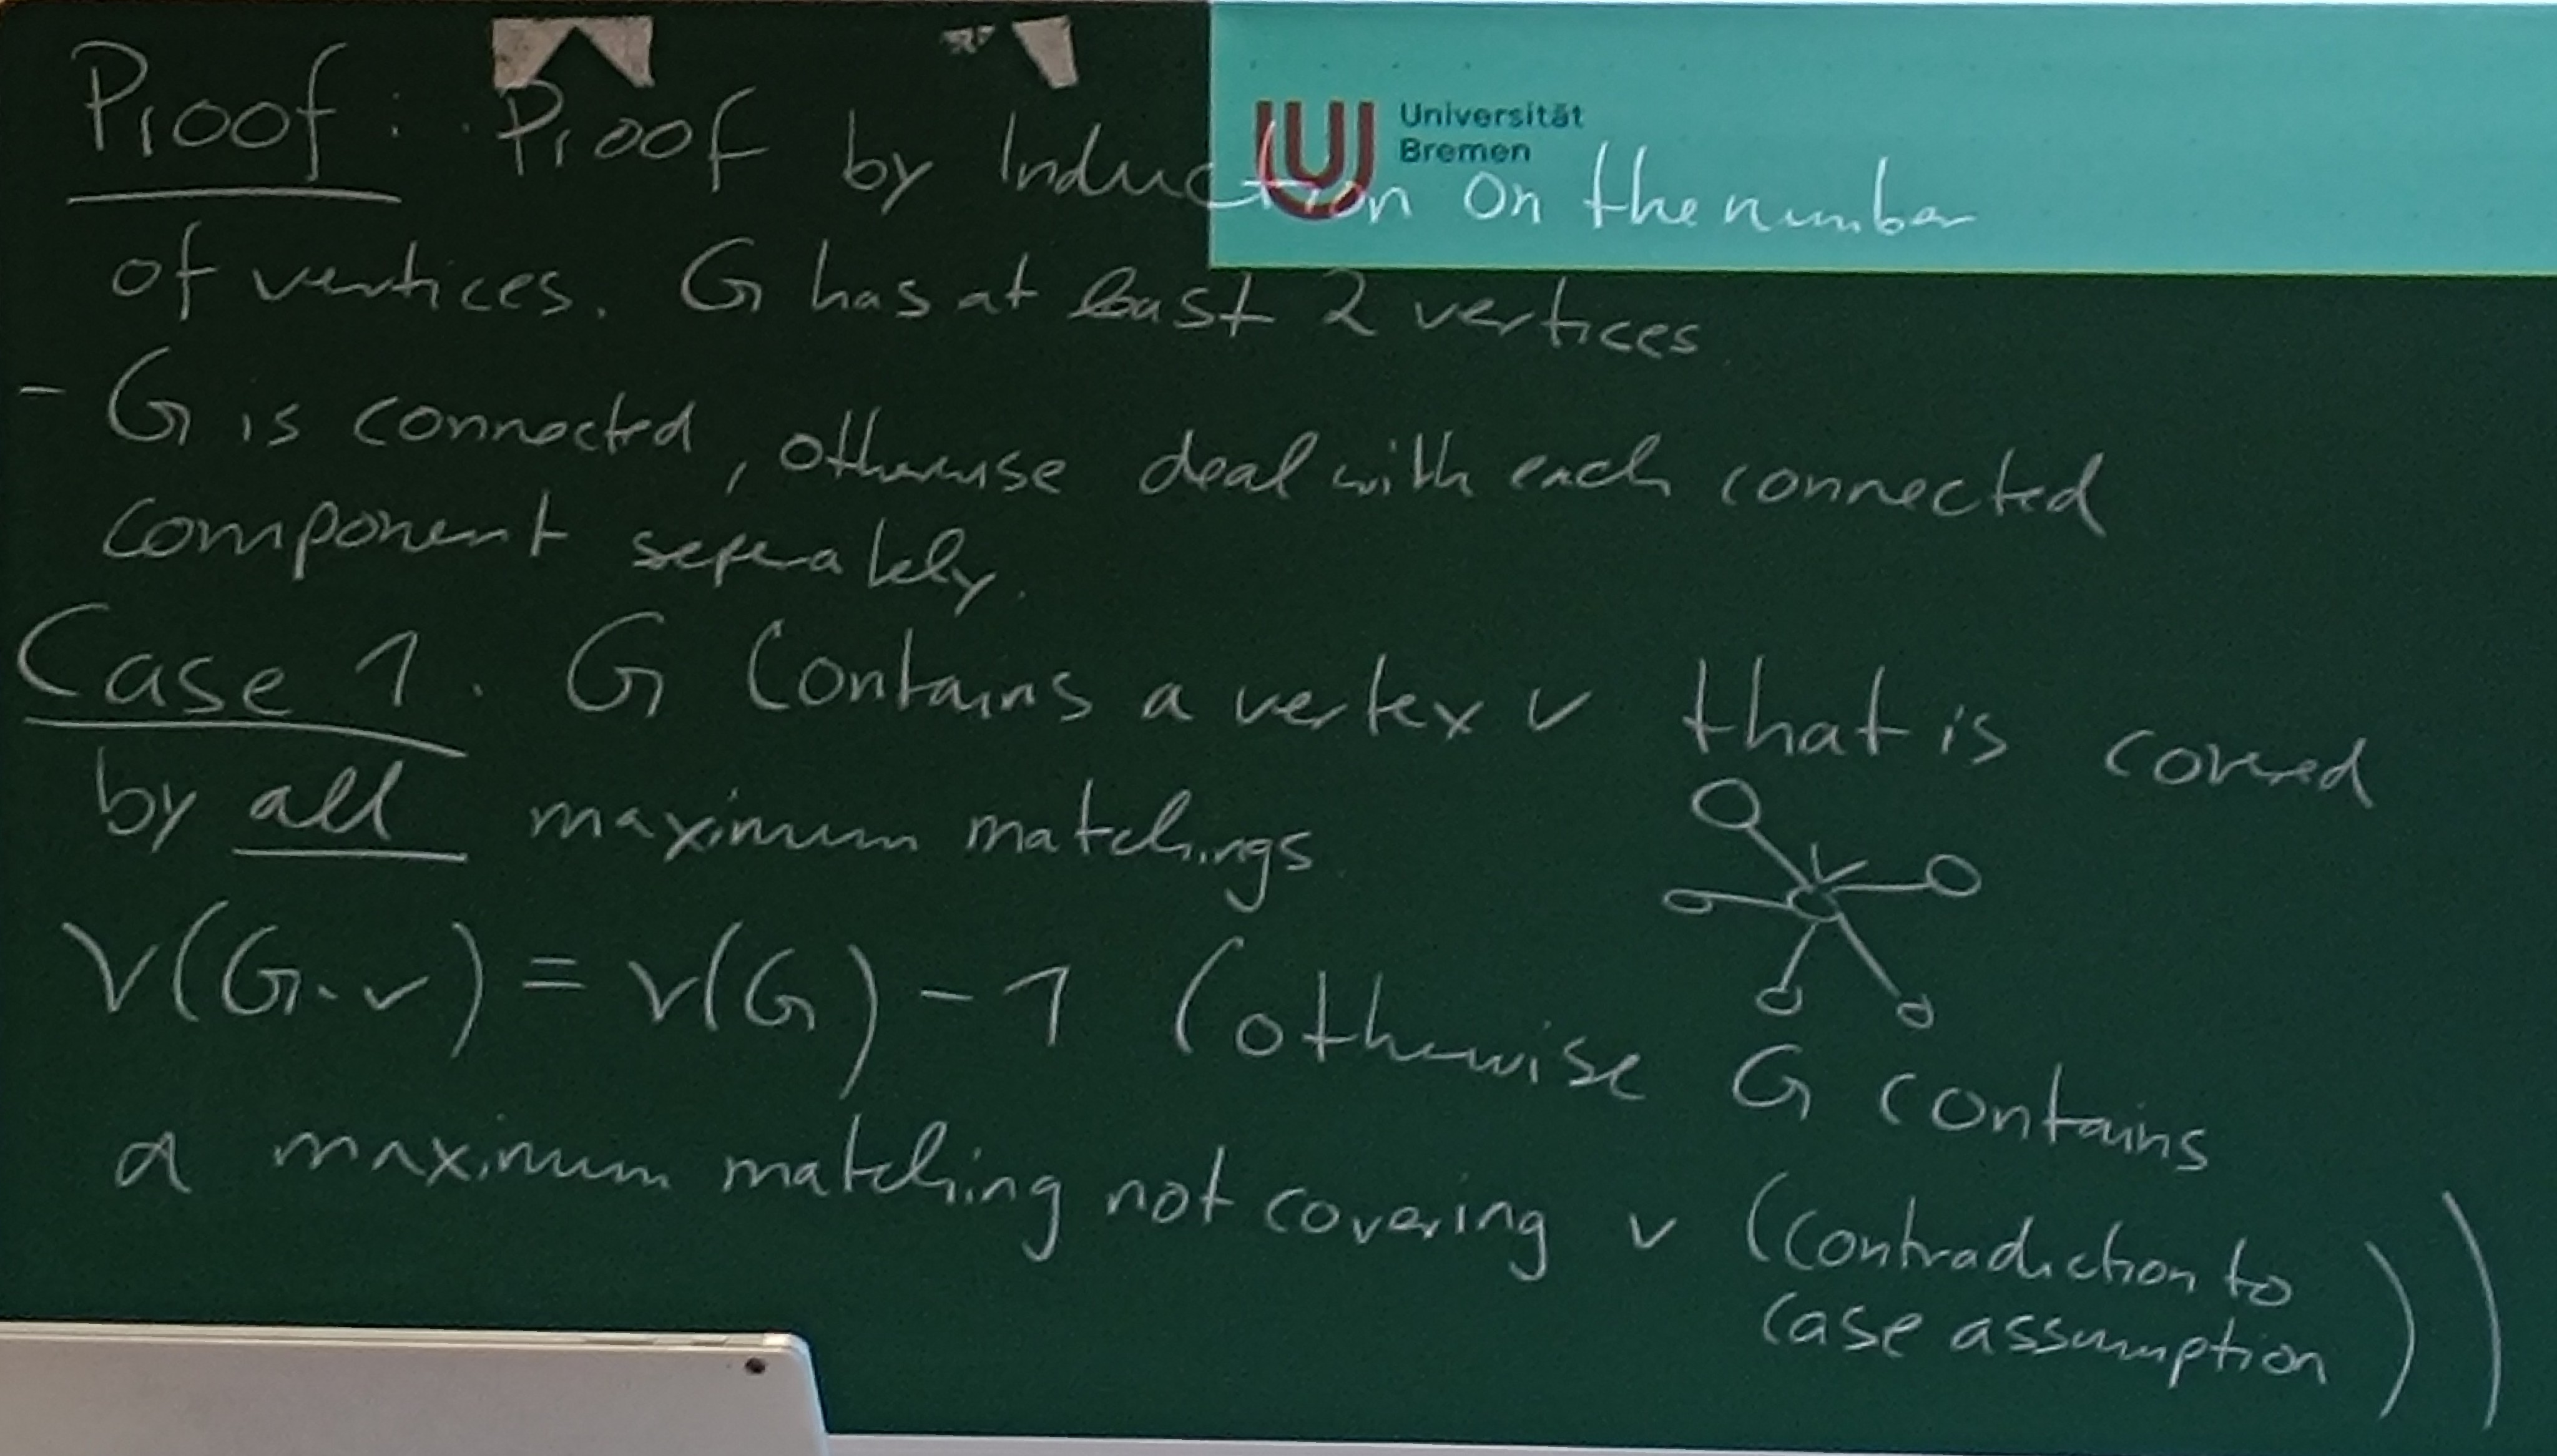 Proof: Proof by Induction on the number
Universität
Bremen
of vertices. G has at least 2 vertices
- G is connected, otherwise deal with each connected
component seperately.
Case 1. G contains a vertex v that is covered
by all maximum matchings
v
ν(G-v) = ν(G) - 1 (otherwise G contains
a maximum matching not covering v (contradiction to
case assumption))